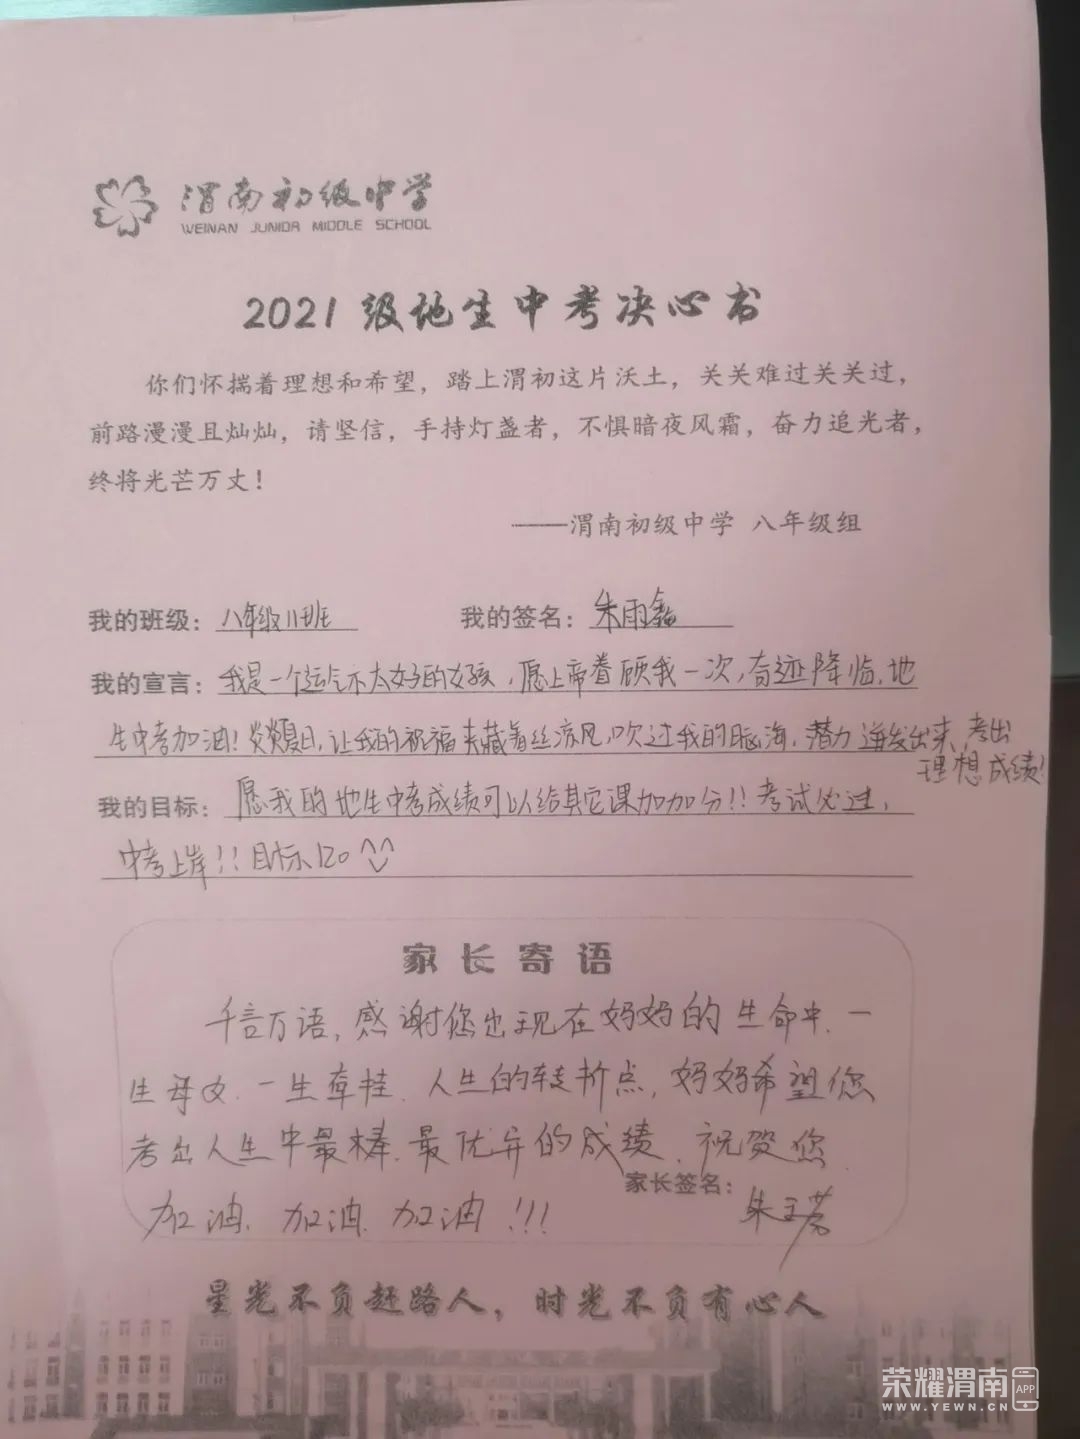 渭南初级中学
WEINAN JUNIOR MIDDLE SCHOOL
2021级地生中考决心书
你们怀揣着理想和希望，踏上渭初这片沃土，关关难过关关过，
前路漫漫且灿灿，请坚信，手持灯盏者，不惧暗夜风霜，奋力追光者，
终将光芒万丈！
——渭南初级中学 八年级组
我的班级：八年级11班 我的签名：朱雨
我的宣言：我是一个运气不太好的女孩，愿上帝眷顾我一次，奇迹降临，地
生中考加油！炎炎夏日，让我的祝福夹藏着丝丝凉风，吹过我的脑海，潜力迸发出来，考出
理想成绩！
我的目标：愿我的地生中考成绩可以给其它课加加分！！考试必过，
中考上岸！！目标120^^
家长寄语
千言万语，感谢您出现在妈妈的生命中，一
生母女，一生牵挂，人生的转折点，妈妈希望您
考出人生中最棒，最优异的成绩，祝贺您
家长签名：朱玉芳
加油，加油，加油！！！
星光不负赶路人，时光不负有心人
荣耀渭南 APP
WWW.YEWN.CN